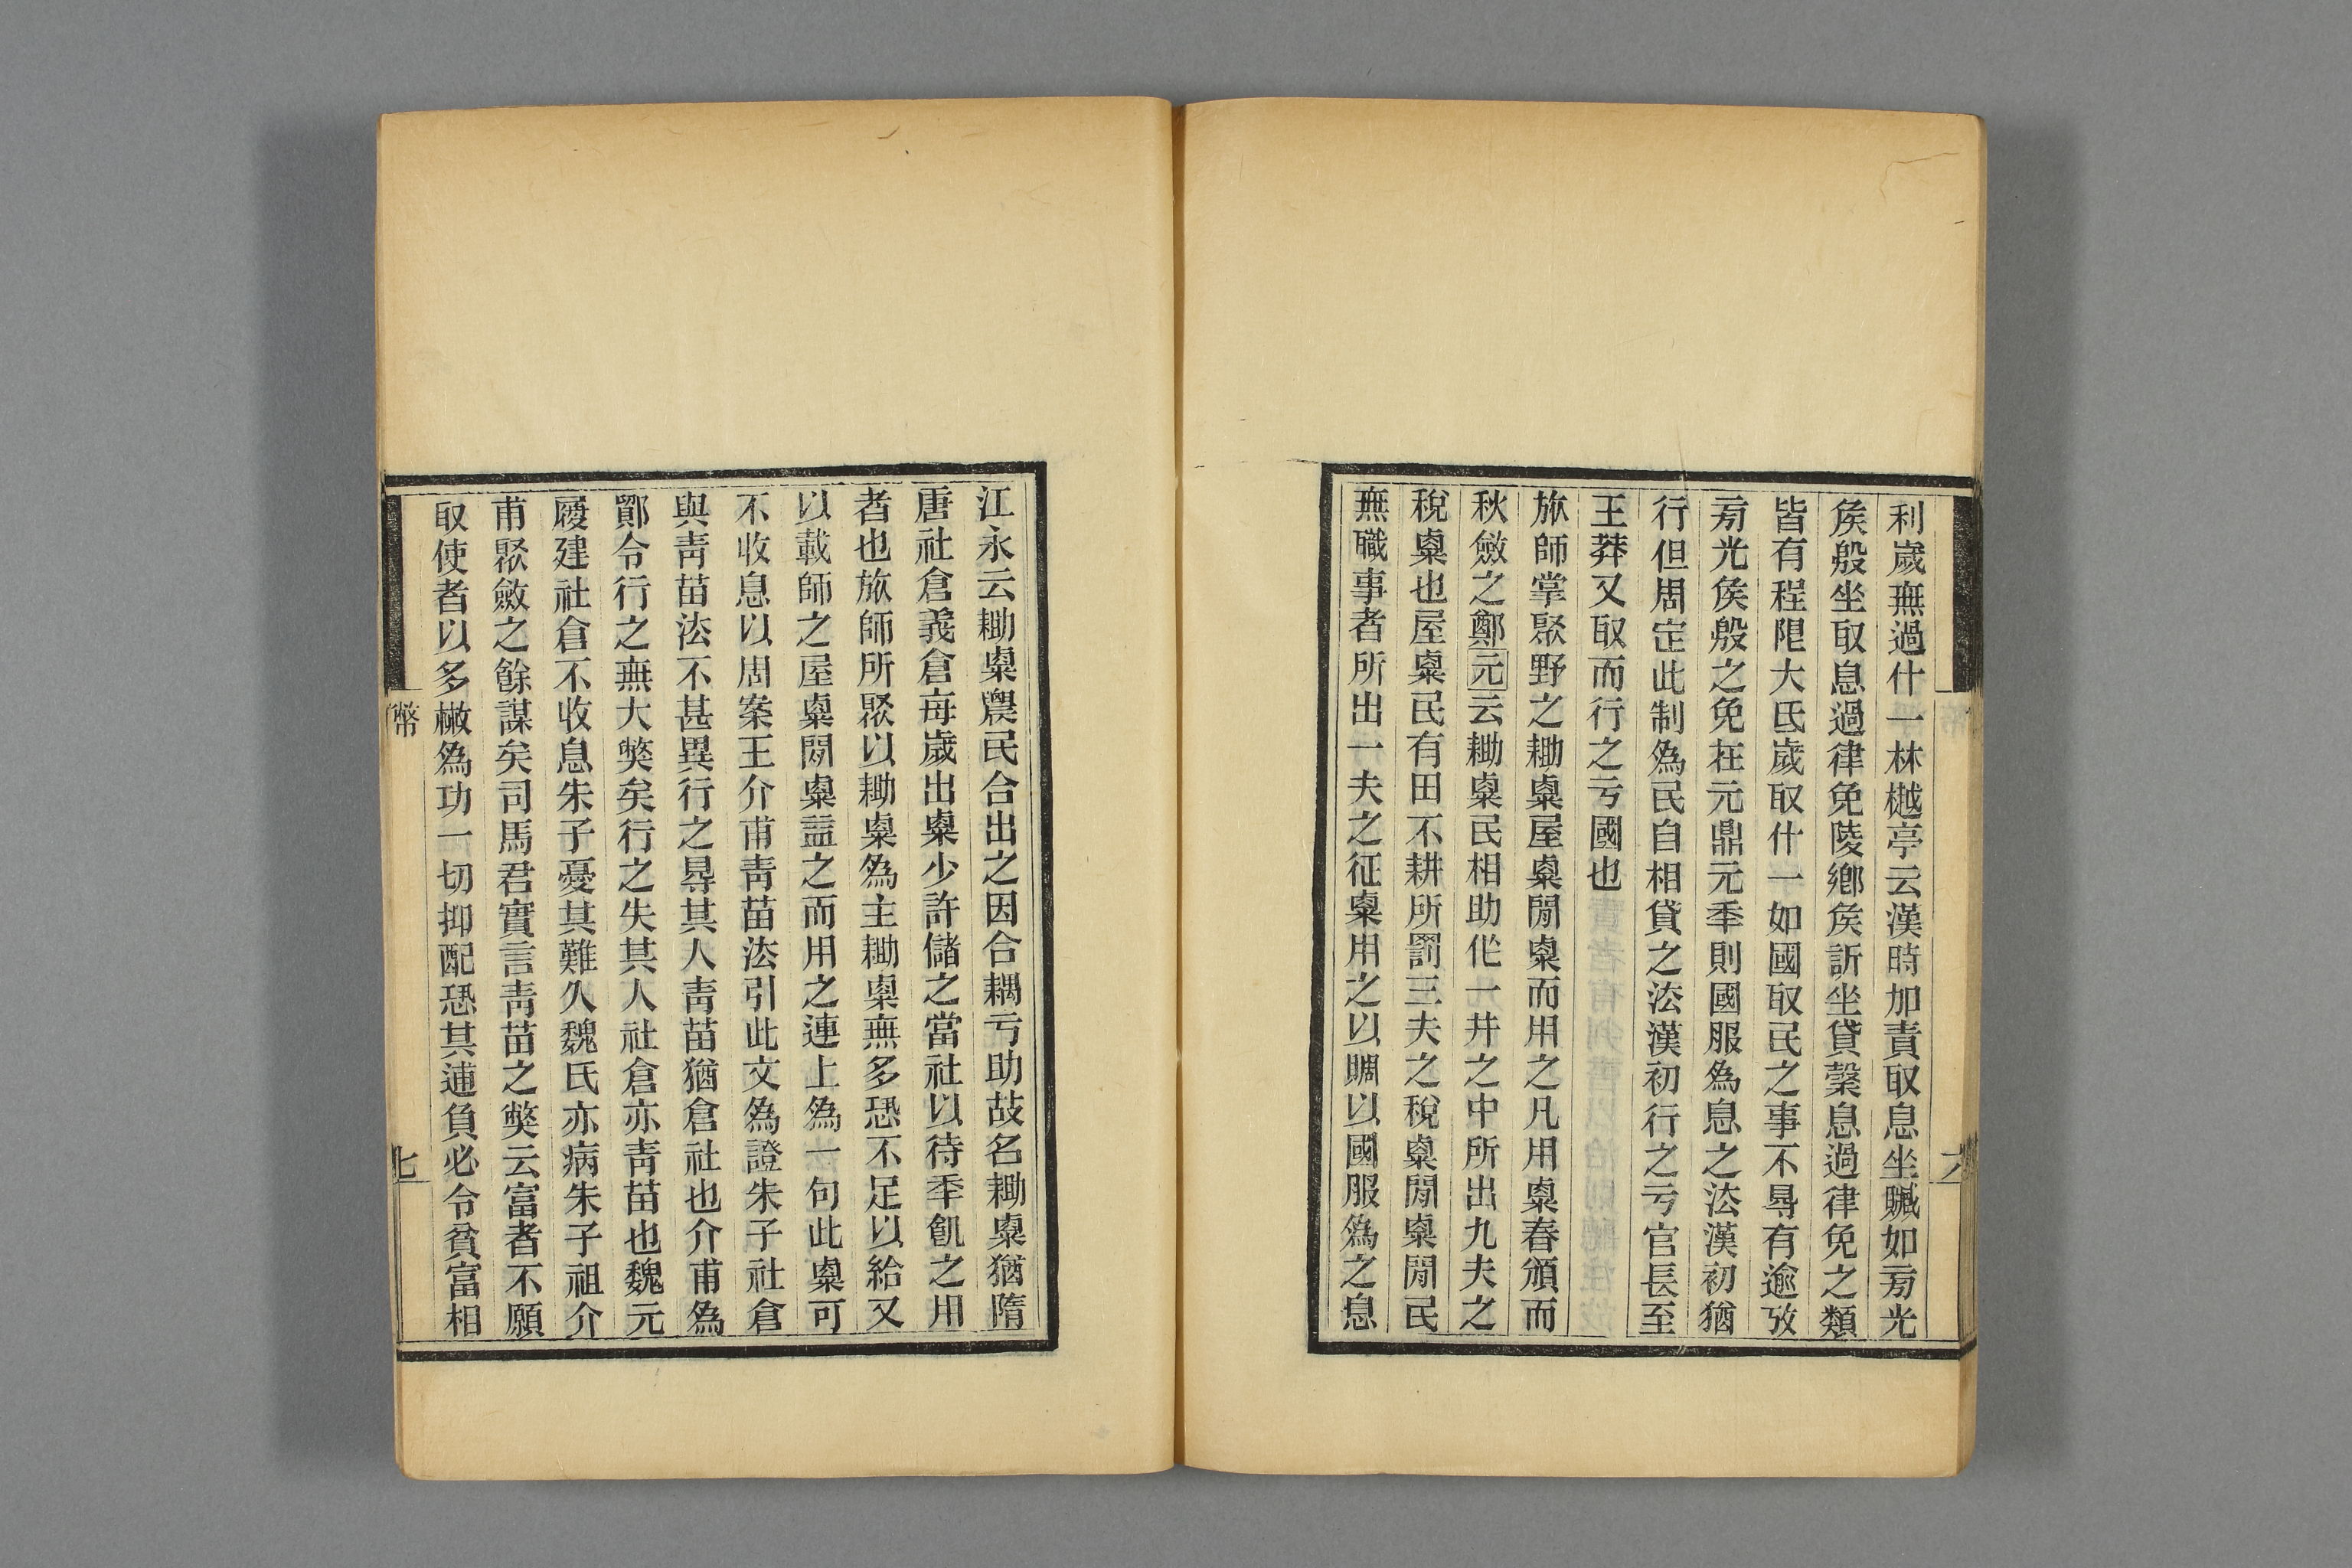 利歲無過什一林樾亭云漢時加責取息坐贓如㫄光
矦殷坐取息過律免陵鄉矦訢坐貸榖息過律免之類
皆有程限大氐歲取什一如國取民之事不㝵有逾攷
㫄光矦殷之免在元鼎元秊則國服為息之㳒漢初猶
行但周定此制為民自相貸之㳒漢初行之亏官長至
王莽又取而行之亏國也
旅師掌聚野之耡粟屋粟閒粟而用之凡用粟春頒而
秋斂之鄭元云耡粟民相助作一井之中所出九夫之
稅粟也屋粟民有田不耕所罰三夫之稅粟閒粟閒民
無職事者所出一夫之征粟用之以賙以國服為之息
六
江永云耡粟農民合出之因合耦亏助故名耡粟猶隋
唐社倉義倉每歲出粟少許儲之當社以待秊飢之用
者也旅師所聚以耡粟為主耡粟無多恐不足以給又
以載師之屋粟閒粟益之而用之連上為一句此粟可
不收息以周案王介甫青苗㳒引此文為證朱子社倉
與青苗㳒不甚異行之㝵其人青苗猶倉社也介甫為
鄞令行之無大獘矣行之失其人社倉亦青苗也魏元
履建社倉不收息朱子憂其難久魏氏亦病朱子祖介
甫聚斂之餘謀矣司馬君實言青苗之獘云富者不願
取使者以多㪚為功一切抑配恐其逋負必令貧富相
幣
七